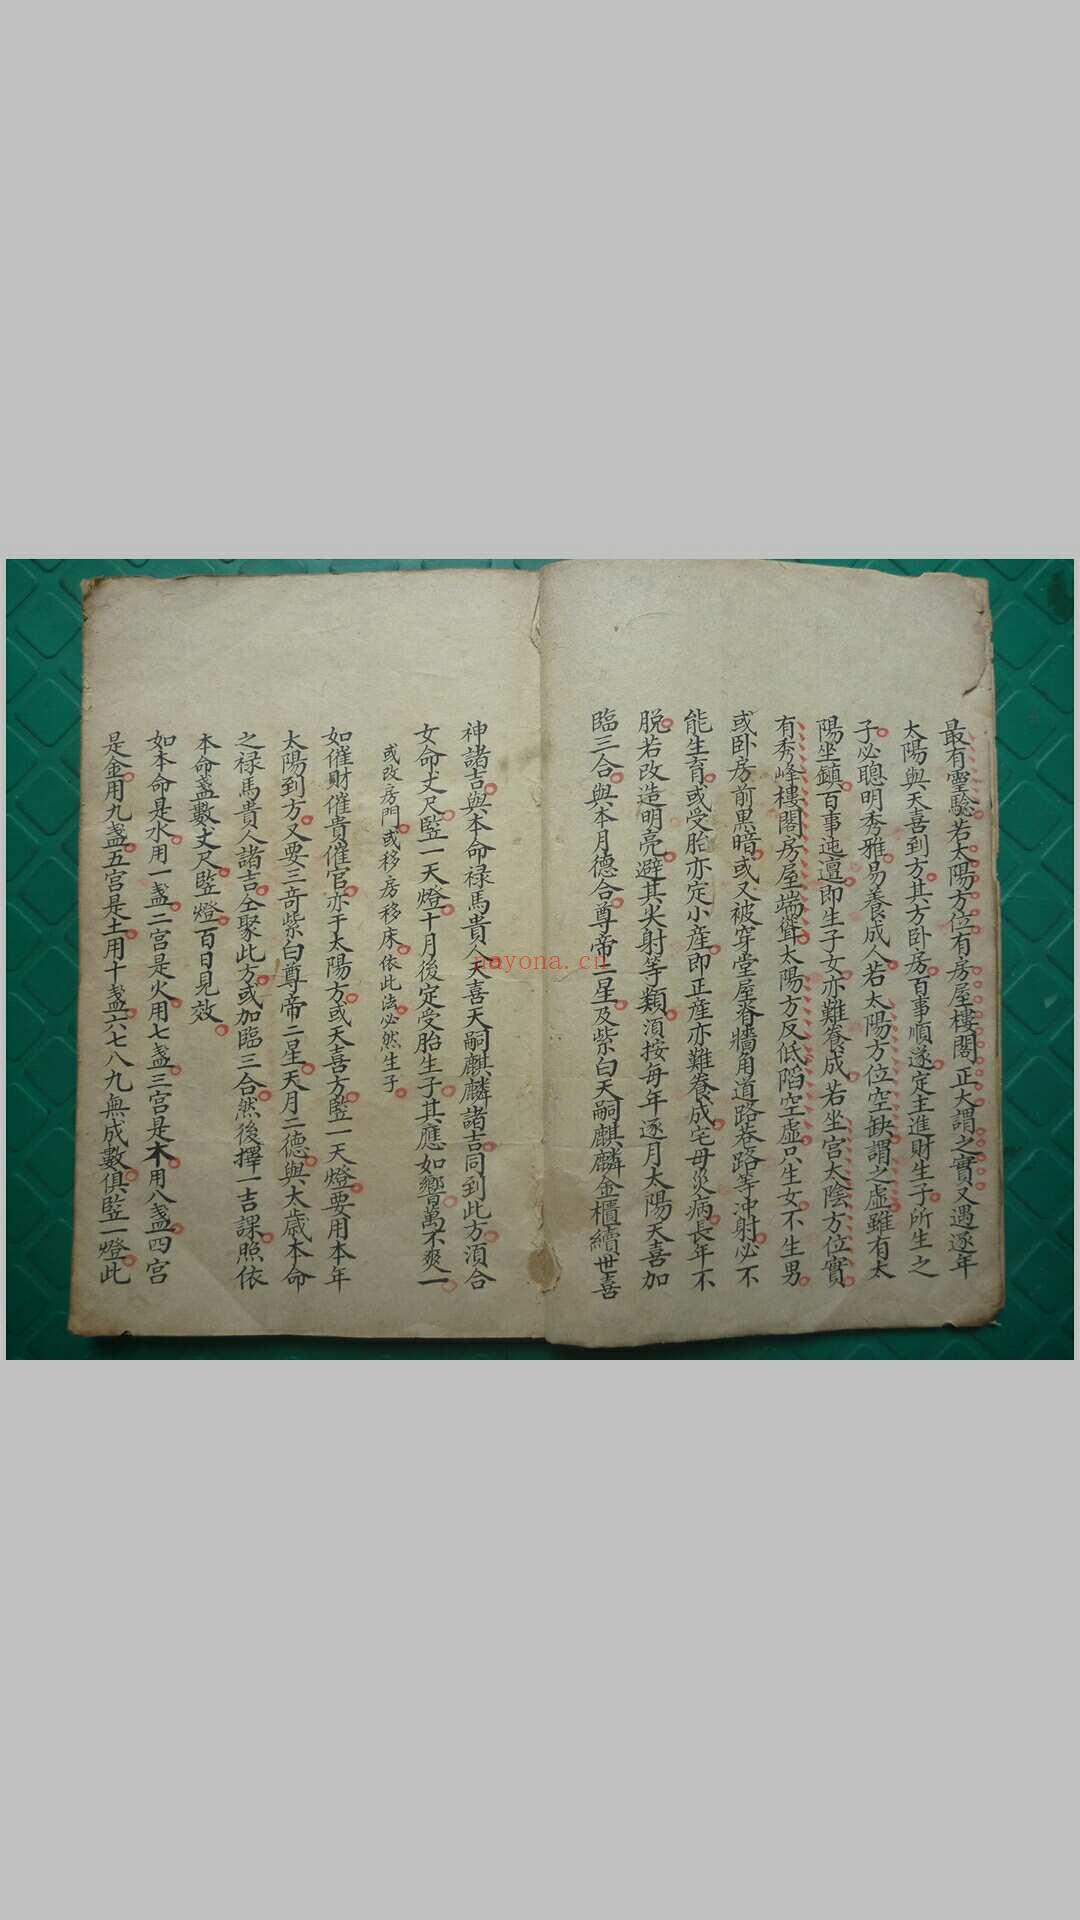 最有靈驗若太陽方位有房屋樓閣正大謂之實又遇逐年
太陽與天喜到方其方卧房百事順遂定主進財生子所生之
子必聰明秀雅易養成人若太陽方位空缺謂之虛雖有太
陽坐鎮百事迍邅即生子女亦難養成若坐宮太陰方位實
有秀峰樓閣房屋端聳太陽方反低陷空虛只生女不生男
或卧房前黑暗或又被穿堂屋脊牆角道路巷路等冲射必不
能生育或受胎亦定小產即正產亦難養成宅母災病長年不
脱若改造明亮避其尖射等類須按每年逐月太陽天喜加
臨三合與本月德合尊帝二星及紫白天嗣麒麟金櫃續世喜
神諸吉與本命禄馬貴人天喜天嗣麒麟諸吉同到此方須合
女命丈尺竪一天燈十月後定受胎生子其應如響萬不爽一
或改房門或移房移床依此法必然生子
如催財催貴催官亦于太陽方或天喜方竪一天燈要用本年
太陽到方又要三奇紫白尊帝二星天月二德與太歲本命
之禄馬貴人諸吉仝聚此方或加臨三合然後擇一吉課照依
本命盞數丈尺竪燈百日見效
如本命是水用一盞二宮是火用七盞三宮是木用八盞四宮
是金用九盞五宮是土用十盞六七八九無成數俱竪一燈此
nayona.cn